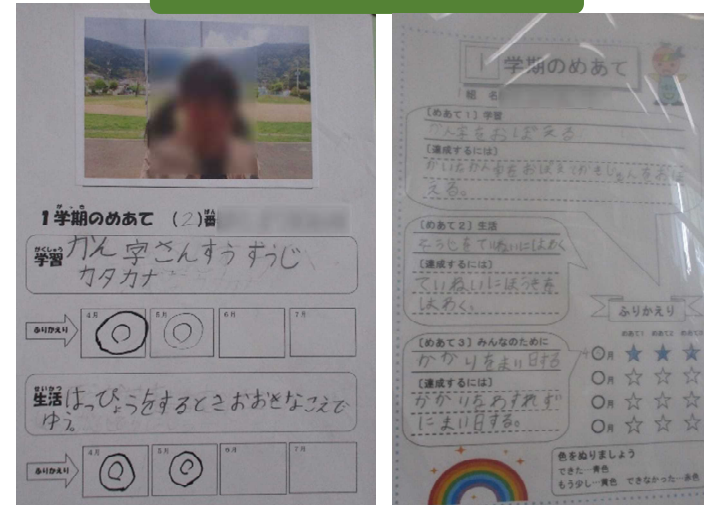 1学期のめあて (2)番
がくしゅう
学習 かん字さんすうすうじ
カタカナ
ふりかえり 4月 5月 6月 7月
せいかつ
生活 はっぴょうをするときおおきなこえで
ゆう
ふりかえり 4月 5月 6月 7月
1 学期のめあて
組 名
〔めあて1〕学習
かん字をおぼえる
〔達成するには〕
える。
〔めあて2〕生活
そうじをていねいにはわく
〔達成するには〕
ていねいにほうきを
はわく。
〔めあて3〕みんなのために
かかりをまい日する
〔達成するには〕
かかりをわすれず
にまい日する。
ふりかえり
めあて1 めあて2 めあて3
〇月 ★ ★ ★
〇月 ☆ ☆ ☆
〇月 ☆ ☆ ☆
〇月 ☆ ☆ ☆
色をぬりましょう
できた…青色
もう少し…黄色 できなかった…赤色